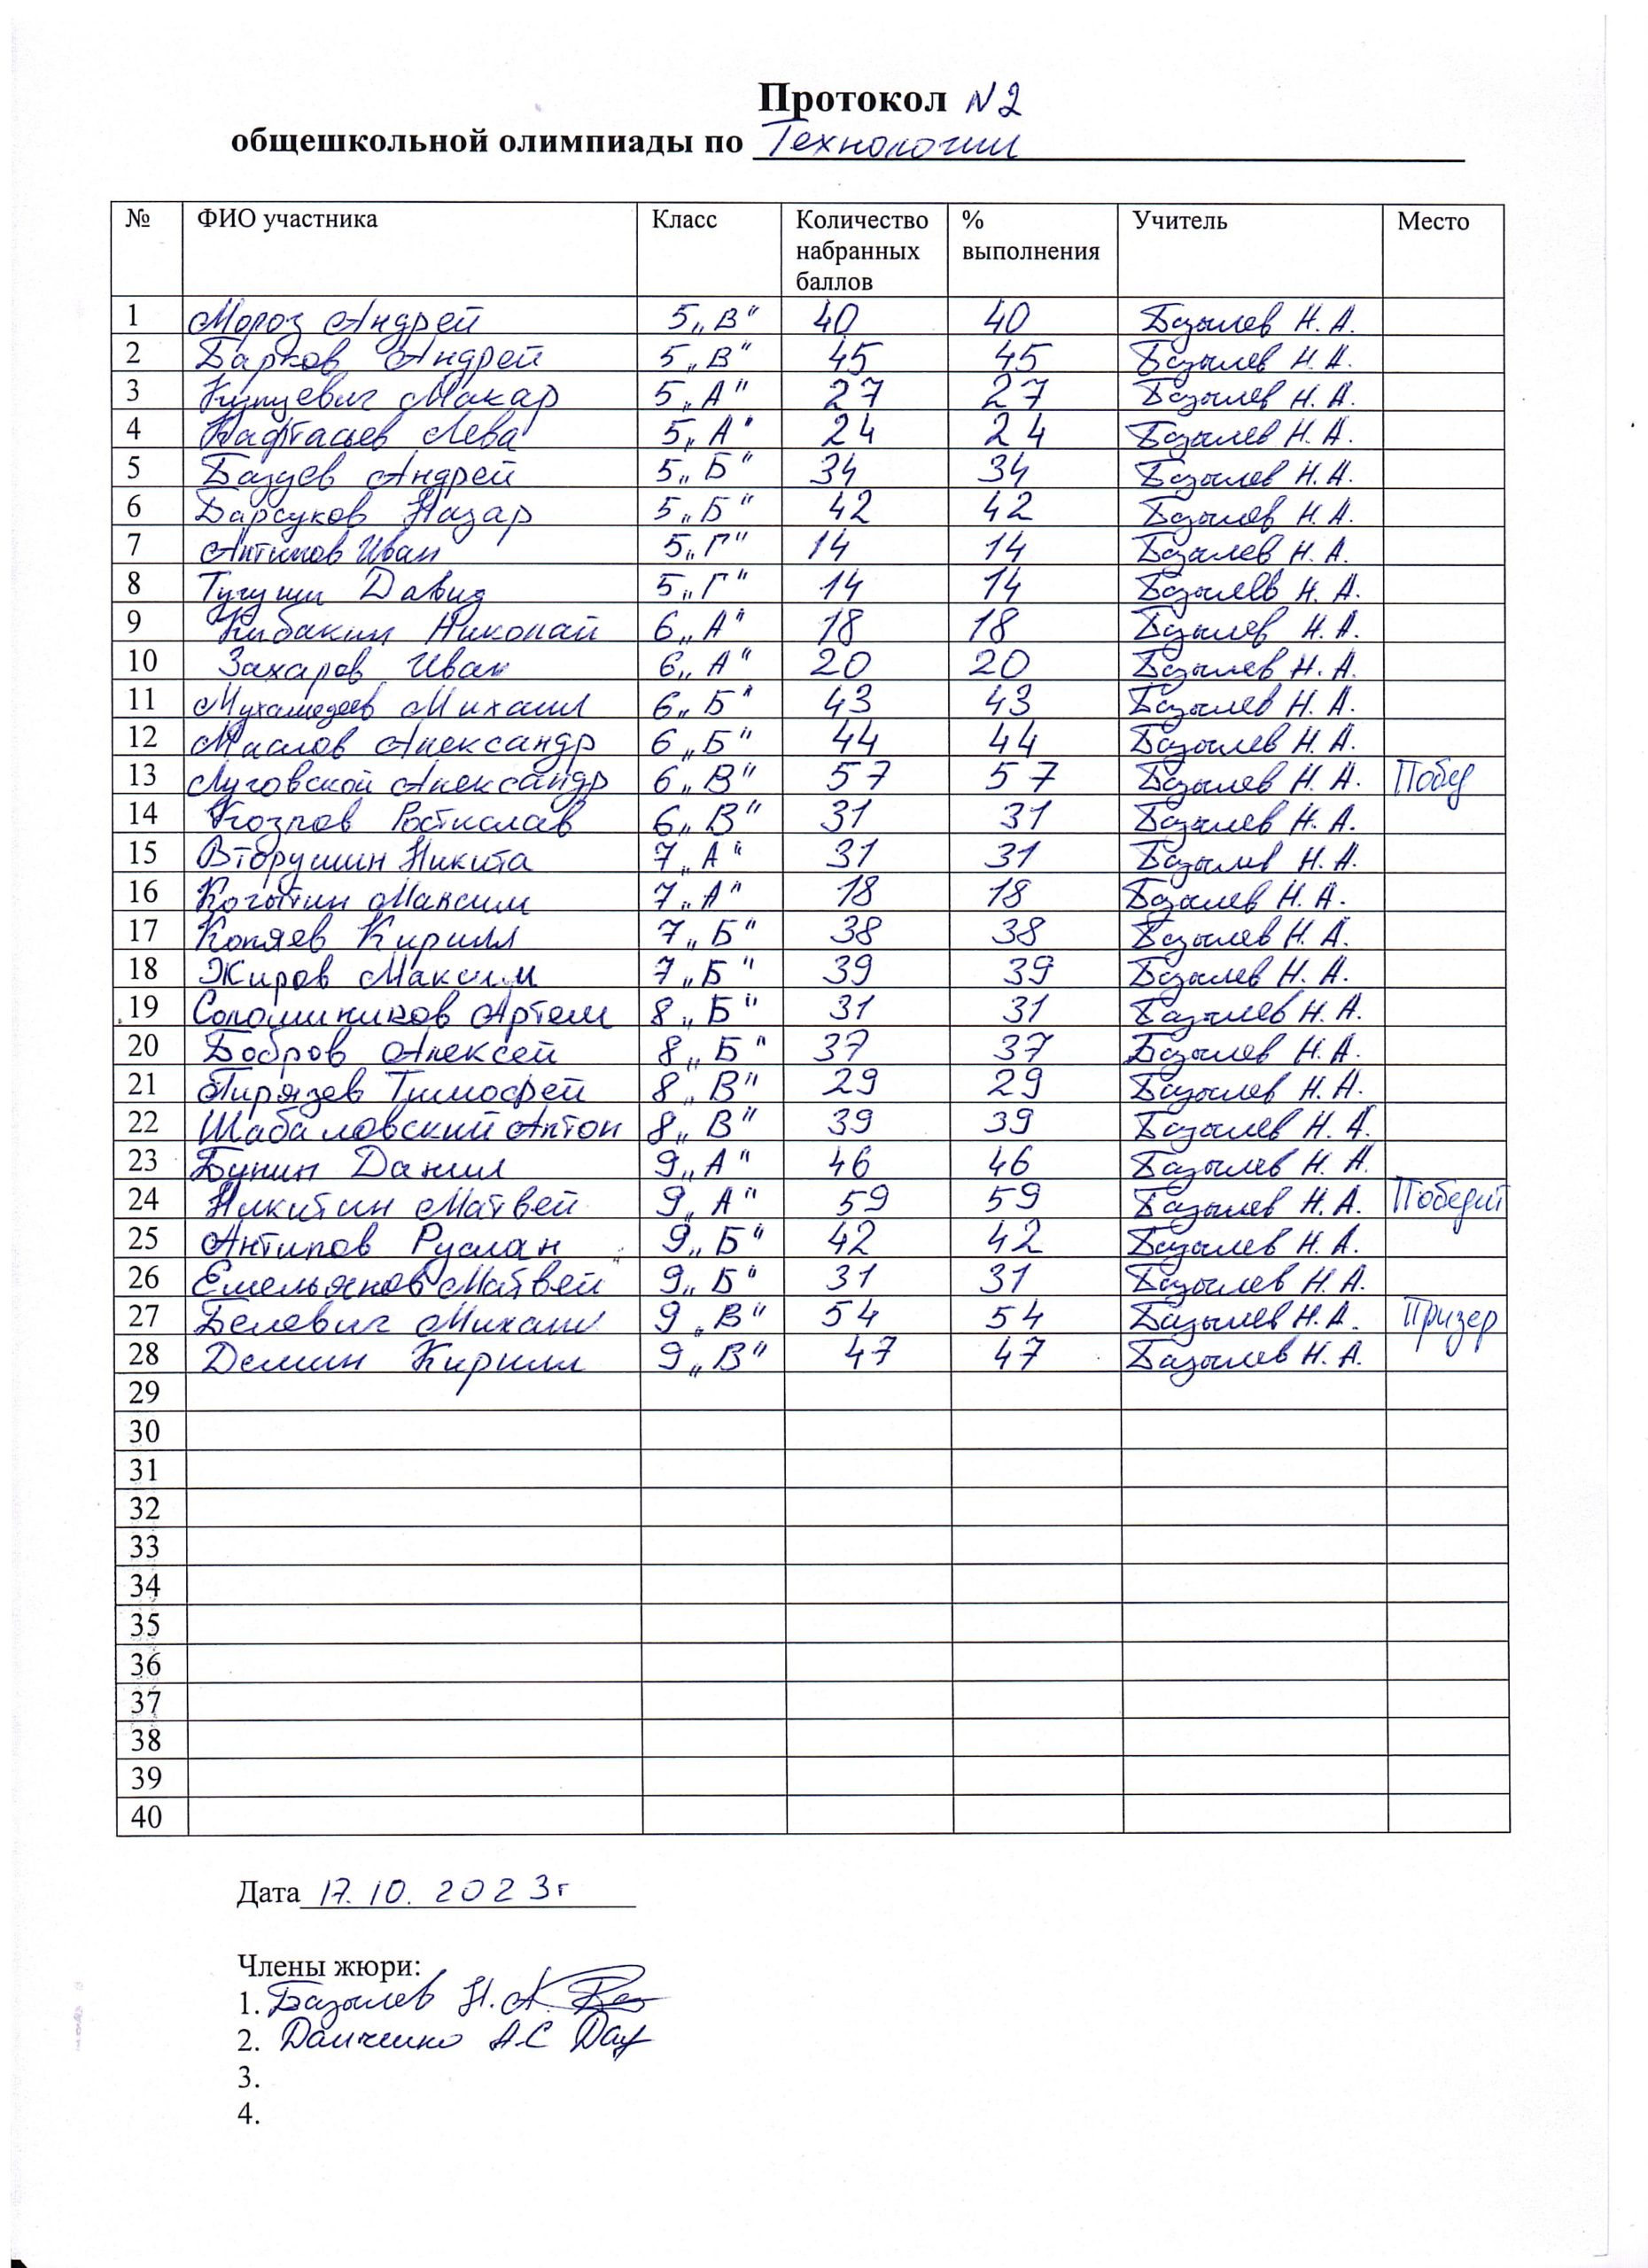 Протокол N 2
общешкольной олимпиады по Технологии
№ ФИО участника Класс Количество набранных баллов % выполнения Учитель Место
1 Мороз Андрей 5 „В" 40 40 Базылев Н. А.
2 Барков Андрей 5 „В" 45 45 Базылев Н. А.
3 Макар 5 „А" 27 27 Базылев Н. А.
4 Лева 5 „А" 24 24 Базылев Н. А.
5 Базуев Андрей 5 „Б" 34 34 Базылев Н. А.
6 Барсуков Назар 5 „Б" 42 42 Базылев Н. А.
7 Антипов Иван 5 „Г" 14 14 Базылев Н. А.
8 Тугуши Давид 5 „Г" 14 14 Базылев Н. А.
9 Кибакин Николай 6 „А" 18 18 Базылев Н. А.
10 Захаров Иван 6 „А" 20 20 Базылев Н. А.
11 Мухамедеев Михаил 6 „Б" 43 43 Базылев Н. А.
12 Маслов Александр 6 „Б" 44 44 Базылев Н. А.
13 Луговской Александр 6 „В" 57 57 Базылев Н. А. Побед
14 Козлов Ростислав 6 „В" 31 31 Базылев Н. А.
15 Вторушин Никита 7 „А" 31 31 Базылев Н. А.
16 Максим 7 „А" 18 18 Базылев Н. А.
17 Копяев Кирилл 7 „Б" 38 38 Базылев Н. А.
18 Жиров Максим 7 „Б" 39 39 Базылев Н. А.
19 Соломников Артем 8 „Б" 31 31 Базылев Н. А.
20 Бобров Алексей 8 „Б" 37 37 Базылев Н. А.
21 Пирязев Тимофей 8 „В" 29 29 Базылев Н. А.
22 Шабаловский Антон 8 „В" 39 39 Базылев Н. А.
23 Бунин Данил 9 „А" 46 46 Базылев Н. А.
24 Никитин Матвей 9 „А" 59 59 Базылев Н. А. Победит
25 Антипов Руслан 9 „Б" 42 42 Базылев Н. А.
26 Емельянов Матвей 9 „Б" 31 31 Базылев Н. А.
27 Белевич Михаил 9 „В" 54 54 Базылев Н. А. Призер
28 Демин Кирилл 9 „В" 47 47 Базылев Н. А.
29
30
31
32
33
34
35
36
37
38
39
40
Дата 17. 10. 2023г
Члены жюри:
1. Базылев Н. А.
2. А.С
3.
4.